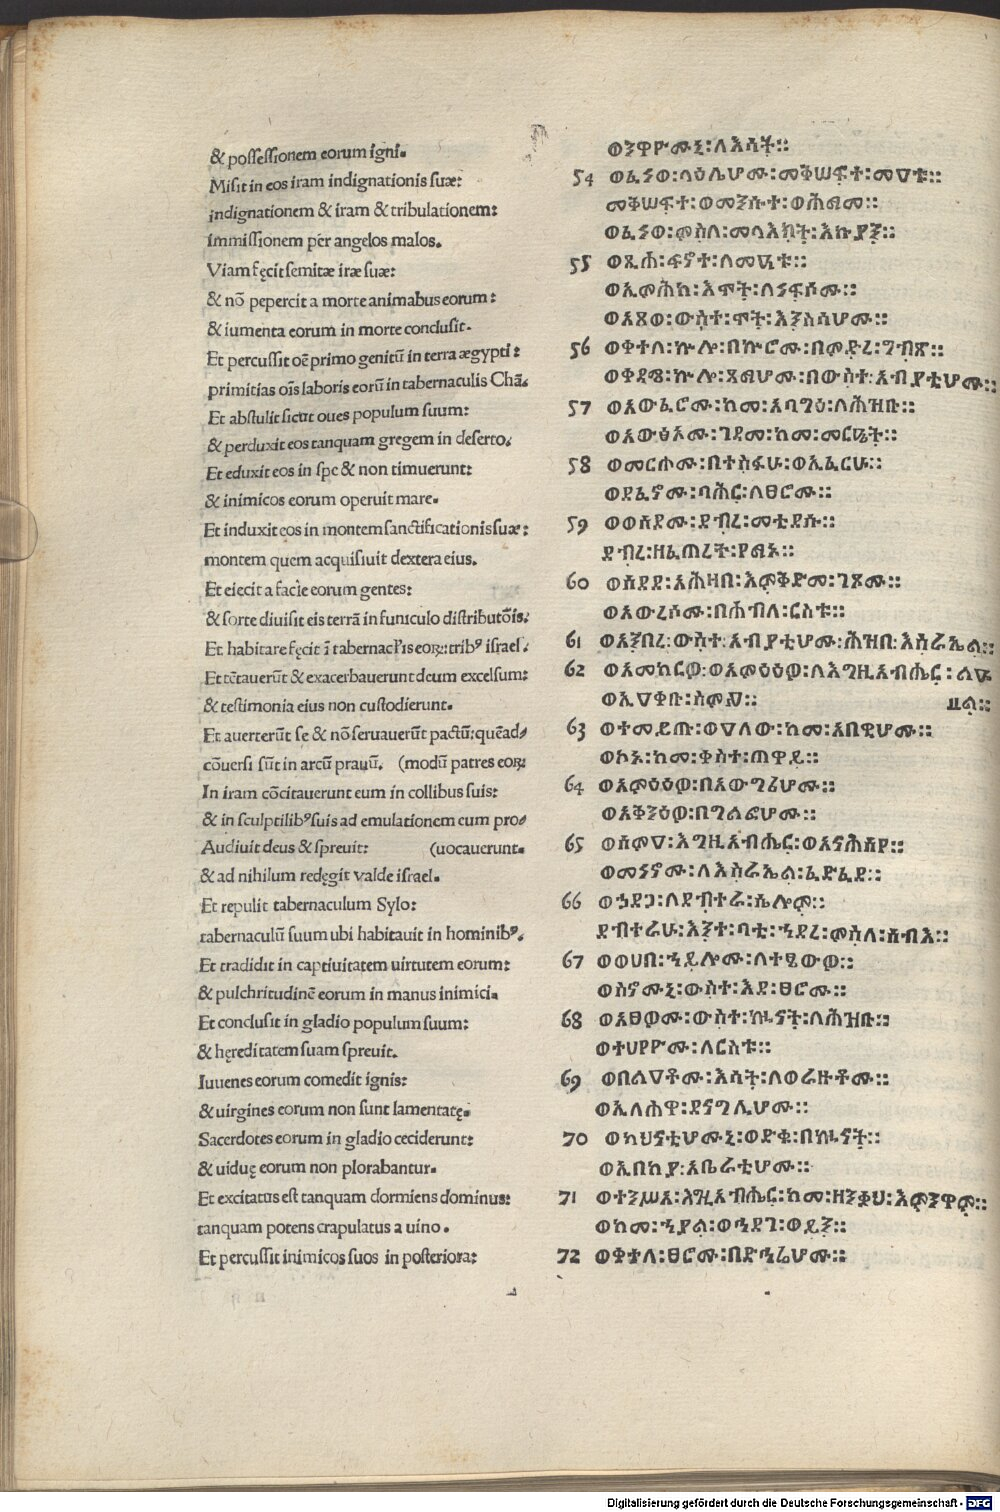 & possessionem eorum igni.
Misit in eos iram indignationis suæ:
indignationem & iram & tribulationem:
immissionem per angelos malos.
Viam fęcit semitæ iræ suæ:
& nõ pepercit a morte animabus eorum:
& iumenta eorum in morte conclusit.
Et percussit oẽ primo genitũ in terra ægypti:
primitias oĩs laboris eorũ in tabernaculis Chã.
Et abstulit sicut oues populum suum:
& perduxit eos tanquam gregem in deserto.
Et eduxit eos in spe & non timuerunt:
& inimicos eorum operuit mare.
Et induxit eos in montem sanctificationis suæ:
montem quem acquisiuit dextera eius.
Et eiecit a facie eorum gentes:
& sorte diuisit eis terrã in funiculo distributõis.
Et habitare fęcit ĩ tabernacľis eoꝝ: tribꝰ israel.
Et tẽtauerũt & exacerbauerunt deum excelsum:
& testimonia eius non custodierunt.
Et auerterũt se & nõ seruauerũt pactũ: quẽad-
cõuersi sũt in arcũ prauũ. (modũ patres eoꝝ
In iram cõcitauerunt eum in collibus suis:
& in sculptilibꝰ suis ad emulationem eum pro-
Audiuit deus & spreuit: (uocauerunt.
& ad nihilum redęgit valde israel.
Et repulit tabernaculum Sylo:
tabernaculũ suum ubi habitauit in hominibꝰ.
Et tradidit in captiuitatem uirtutem eorum:
& pulchritudinẽ eorum in manus inimici.
Et conclusit in gladio populum suum:
& hęreditatem suam spreuit.
Iuuenes eorum comedit ignis:
& uirgines eorum non sunt lamentatę.
Sacerdotes eorum in gladio ceciderunt:
& uiduę eorum non plorabantur.
Et excitatus est tanquam dormiens dominus:
tanquam potens crapulatus a uino.
Et percussit inimicos suos in posteriora:
ወንዋዮሙኒ፡ለእሳት።
54 ወፈነወ፡ላዕሌሆሙ፡መቅሠፍተ፡መዓቱ።
መቅሠፍተ፡ወመንሱተ፡ወሕማመ።
ወፈነወ፡ምስለ፡መላእክት፡እኩያን።
55 ወጼሐ፡ፍኖተ፡ለመዓቱ።
ወኢምሕከ፡እሞት፡ለነፍሶሙ።
ወአጸወ፡ውስተ፡ሞት፡እንስሳሆሙ።
56 ወቀተለ፡ኵሎ፡በኵሮሙ፡በምድረ፡ግብጽ።
ወቀዳሜ፡ኵሎ፡ጻማሆሙ፡በውስተ፡አብያቲሆሙ።
57 ወአውፈሮሙ፡ከመ፡አባግዕ፡ለሕዝቡ።
ወአውፅኦሙ፡ገዳመ፡ከመ፡መርዔት።
58 ወመርሖሙ፡በተስፋሁ፡ወኢፈርሁ።
ወደፈኖሙ፡ባሕር፡ለፀሮሙ።
59 ወወሰዶሙ፡ደብረ፡መቅደሱ።
ደብረ፡ዘፈጠረት፡የማኑ።
60 ወሰደደ፡አሕዛበ፡እምቅድመ፡ገጾሙ።
ወአውረሶሙ፡በሐብለ፡ርስቱ።
61 ወአንበረ፡ውስተ፡አብያቲሆሙ፡ሕዝበ፡እስራኤል።
62 ወአመከርዎ፡ወአምዕዕዎ፡ለእግዚአብሔር፡ልዑ
ወኢዓቀቡ፡ስምዖ። ል።
63 ወተመይጡ፡ወዓለው፡ከመ፡አበዊሆሙ።
ወኮኑ፡ከመ፡ቀስት፡ጠዋይ።
64 ወአምዕዕዎ፡በአውግሪሆሙ።
ወአቅንዕዎ፡በግልፎሆሙ።
65 ወሰምዓ፡እግዚአብሔር፡ወአናሕሰየ።
ወመነኖሙ፡ለእስራኤል፡ፈድፋደ።
66 ወኃደጋ፡ለደብተራ፡ሴሎም።
ደብተራሁ፡እንተ፡ባቲ፡ኀደረ፡ምስለ፡ሰብእ።
67 ወወሀበ፡ኀይሎሙ፡ለተፄውዎ።
ወስኖሙኒ፡ውስተ፡እደ፡ፀሮሙ።
68 ወአፀዎሙ፡ውስተ፡ኵናት፡ለሕዝቡ።
ወተሀየዮሙ፡ለርስቱ።
69 ወበልዓቶሙ፡እሳት፡ለወራዙቶሙ።
ወኢለሐዋ፡ደናግሊሆሙ።
70 ወካህናቲሆሙኒ፡ወድቁ፡በኵናት።
ወኢበከያ፡አቤራቲሆሙ።
71 ወተንሥአ፡እግዚአብሔር፡ከመ፡ዘንቃህ፡እምንዋም።
ወከመ፡ኀያል፡ወኀደገ፡ወይን።
72 ወቀተለ፡ፀሮሙ፡በድኅሬሆሙ።
Digitalisierung gefördert durch die Deutsche Forschungsgemeinschaft - DFG